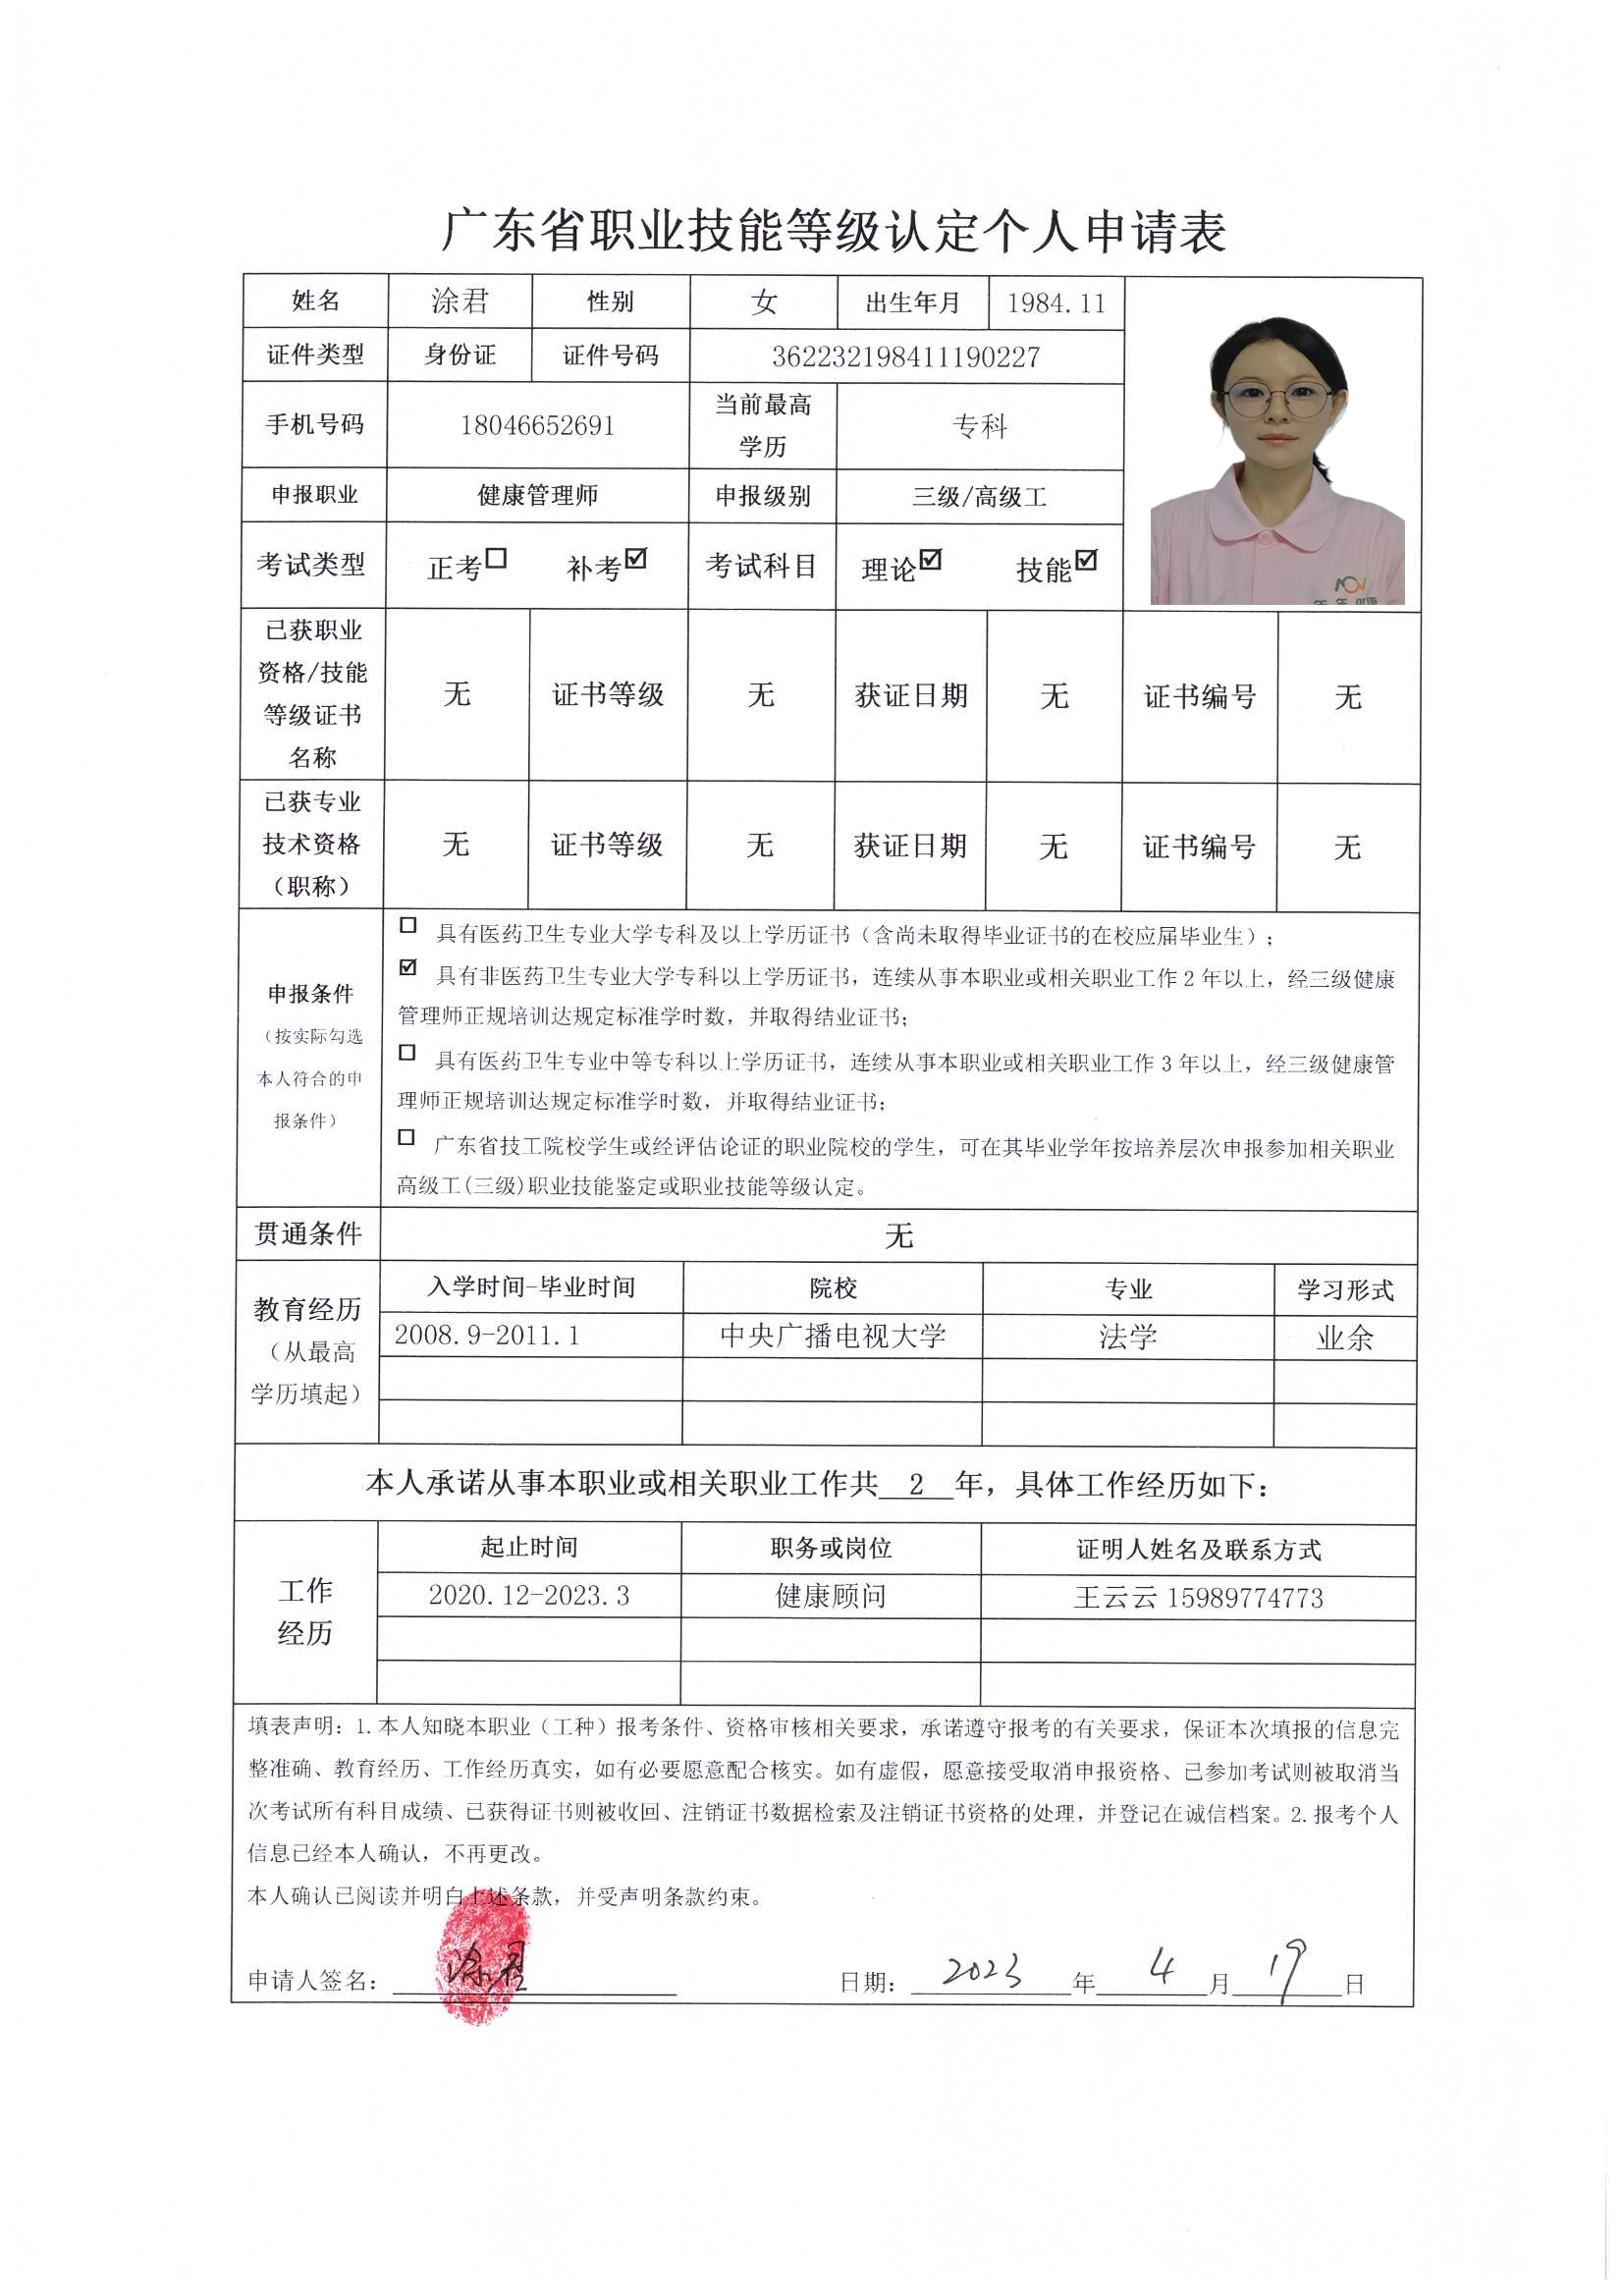 广东省职业技能等级认定个人申请表
姓名 涂君 性别 女 出生年月 1984.11
证件类型 身份证 证件号码 362232198411190227
手机号码 18046652691 当前最高 专科
学历
申报职业 健康管理师 申报级别 三级/高级工
考试类型 正考☐ 补考☑ 考试科目 理论☑ 技能☑
已获职业
资格/技能 无 证书等级 无 获证日期 无 证书编号 无
等级证书
名称
已获专业
技术资格 无 证书等级 无 获证日期 无 证书编号 无
（职称）
申报条件
（按实际勾选
本人符合的申
报条件）
☐ 具有医药卫生专业大学专科及以上学历证书（含尚未取得毕业证书的在校应届毕业生）；
☑ 具有非医药卫生专业大学专科以上学历证书，连续从事本职业或相关职业工作 2 年以上，经三级健康
管理师正规培训达规定标准学时数，并取得结业证书；
☐ 具有医药卫生专业中等专科以上学历证书，连续从事本职业或相关职业工作 3 年以上，经三级健康管
理师正规培训达规定标准学时数，并取得结业证书；
☐ 广东省技工院校学生或经评估论证的职业院校的学生，可在其毕业学年按培养层次申报参加相关职业
高级工(三级)职业技能鉴定或职业技能等级认定。
贯通条件 无
教育经历
（从最高
学历填起）
入学时间-毕业时间 院校 专业 学习形式
2008.9-2011.1 中央广播电视大学 法学 业余
本人承诺从事本职业或相关职业工作共 2 年，具体工作经历如下：
工作
经历
起止时间 职务或岗位 证明人姓名及联系方式
2020.12-2023.3 健康顾问 王云云 15989774773
填表声明：1.本人知晓本职业（工种）报考条件、资格审核相关要求，承诺遵守报考的有关要求，保证本次填报的信息完
整准确、教育经历、工作经历真实，如有必要愿意配合核实。如有虚假，愿意接受取消申报资格、已参加考试则被取消当
次考试所有科目成绩、已获得证书则被收回、注销证书数据检索及注销证书资格的处理，并登记在诚信档案。2.报考个人
信息已经本人确认，不再更改。
本人确认已阅读并明白上述条款，并受声明条款约束。
申请人签名：涂君 日期：2023 年 4 月 19 日